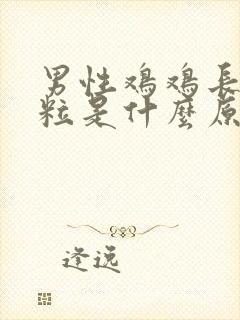 男性鸡鸡長
粒是什麼原
逢逸